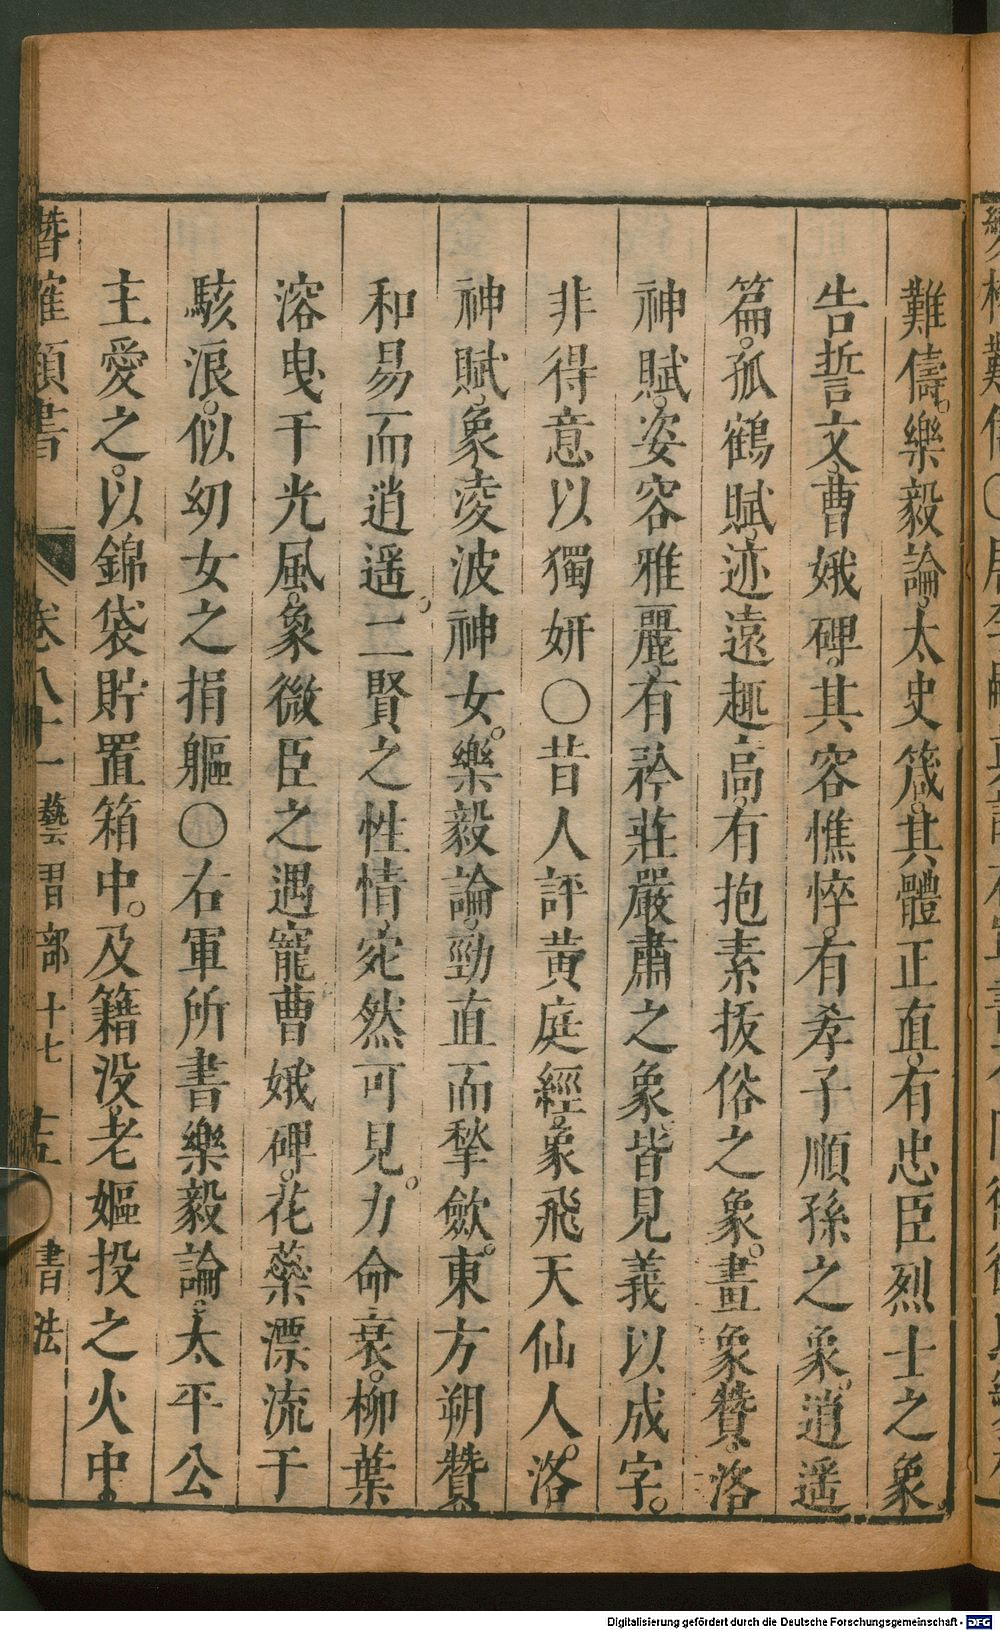 難儔。樂毅論。太史箴。其體正直。有忠臣烈士之象
告誓文。曹娥碑。其容憔悴。有孝子順孫之象。逍遥
篇。孤鶴賦。迹遠趣高。有抱素抜俗之象。畫象贊。洛
神賦。姿容雅麗。有矜莊嚴肅之象。皆見義以成字。
非得意以獨妍〇昔人評黃庭經。象飛天仙人。洛
神賦。象淩波神女。樂毅論。勁直而摯歛。東方朔贊
和易而逍遥。二賢之性情宛然可見。力命衰。柳葉
溶曳于光風。象微臣之遇寵。曹娥碑。花蘂漂流于
駭浪。似幼女之捐軀〇右軍所書樂毅論。太平公
主愛之。以錦袋貯置箱中。及籍没。老嫗投之火中。
潛確類書 卷八十一 藝習部十七 十五 書法
Digitalisierung gefördert durch die Deutsche Forschungsgemeinschaft - DFG